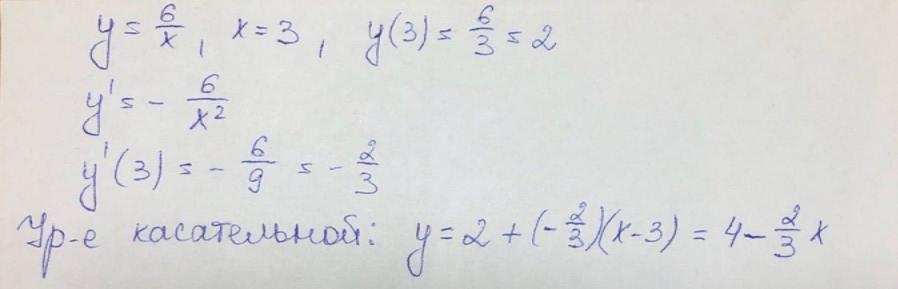 y = 6/x, x = 3, y(3) = 6/3 = 2
y' = - 6/x²
y'(3) = - 6/9 = - 2/3
Ур-е касательной: y = 2 + (-2/3)(x-3) = 4 - 2/3 x